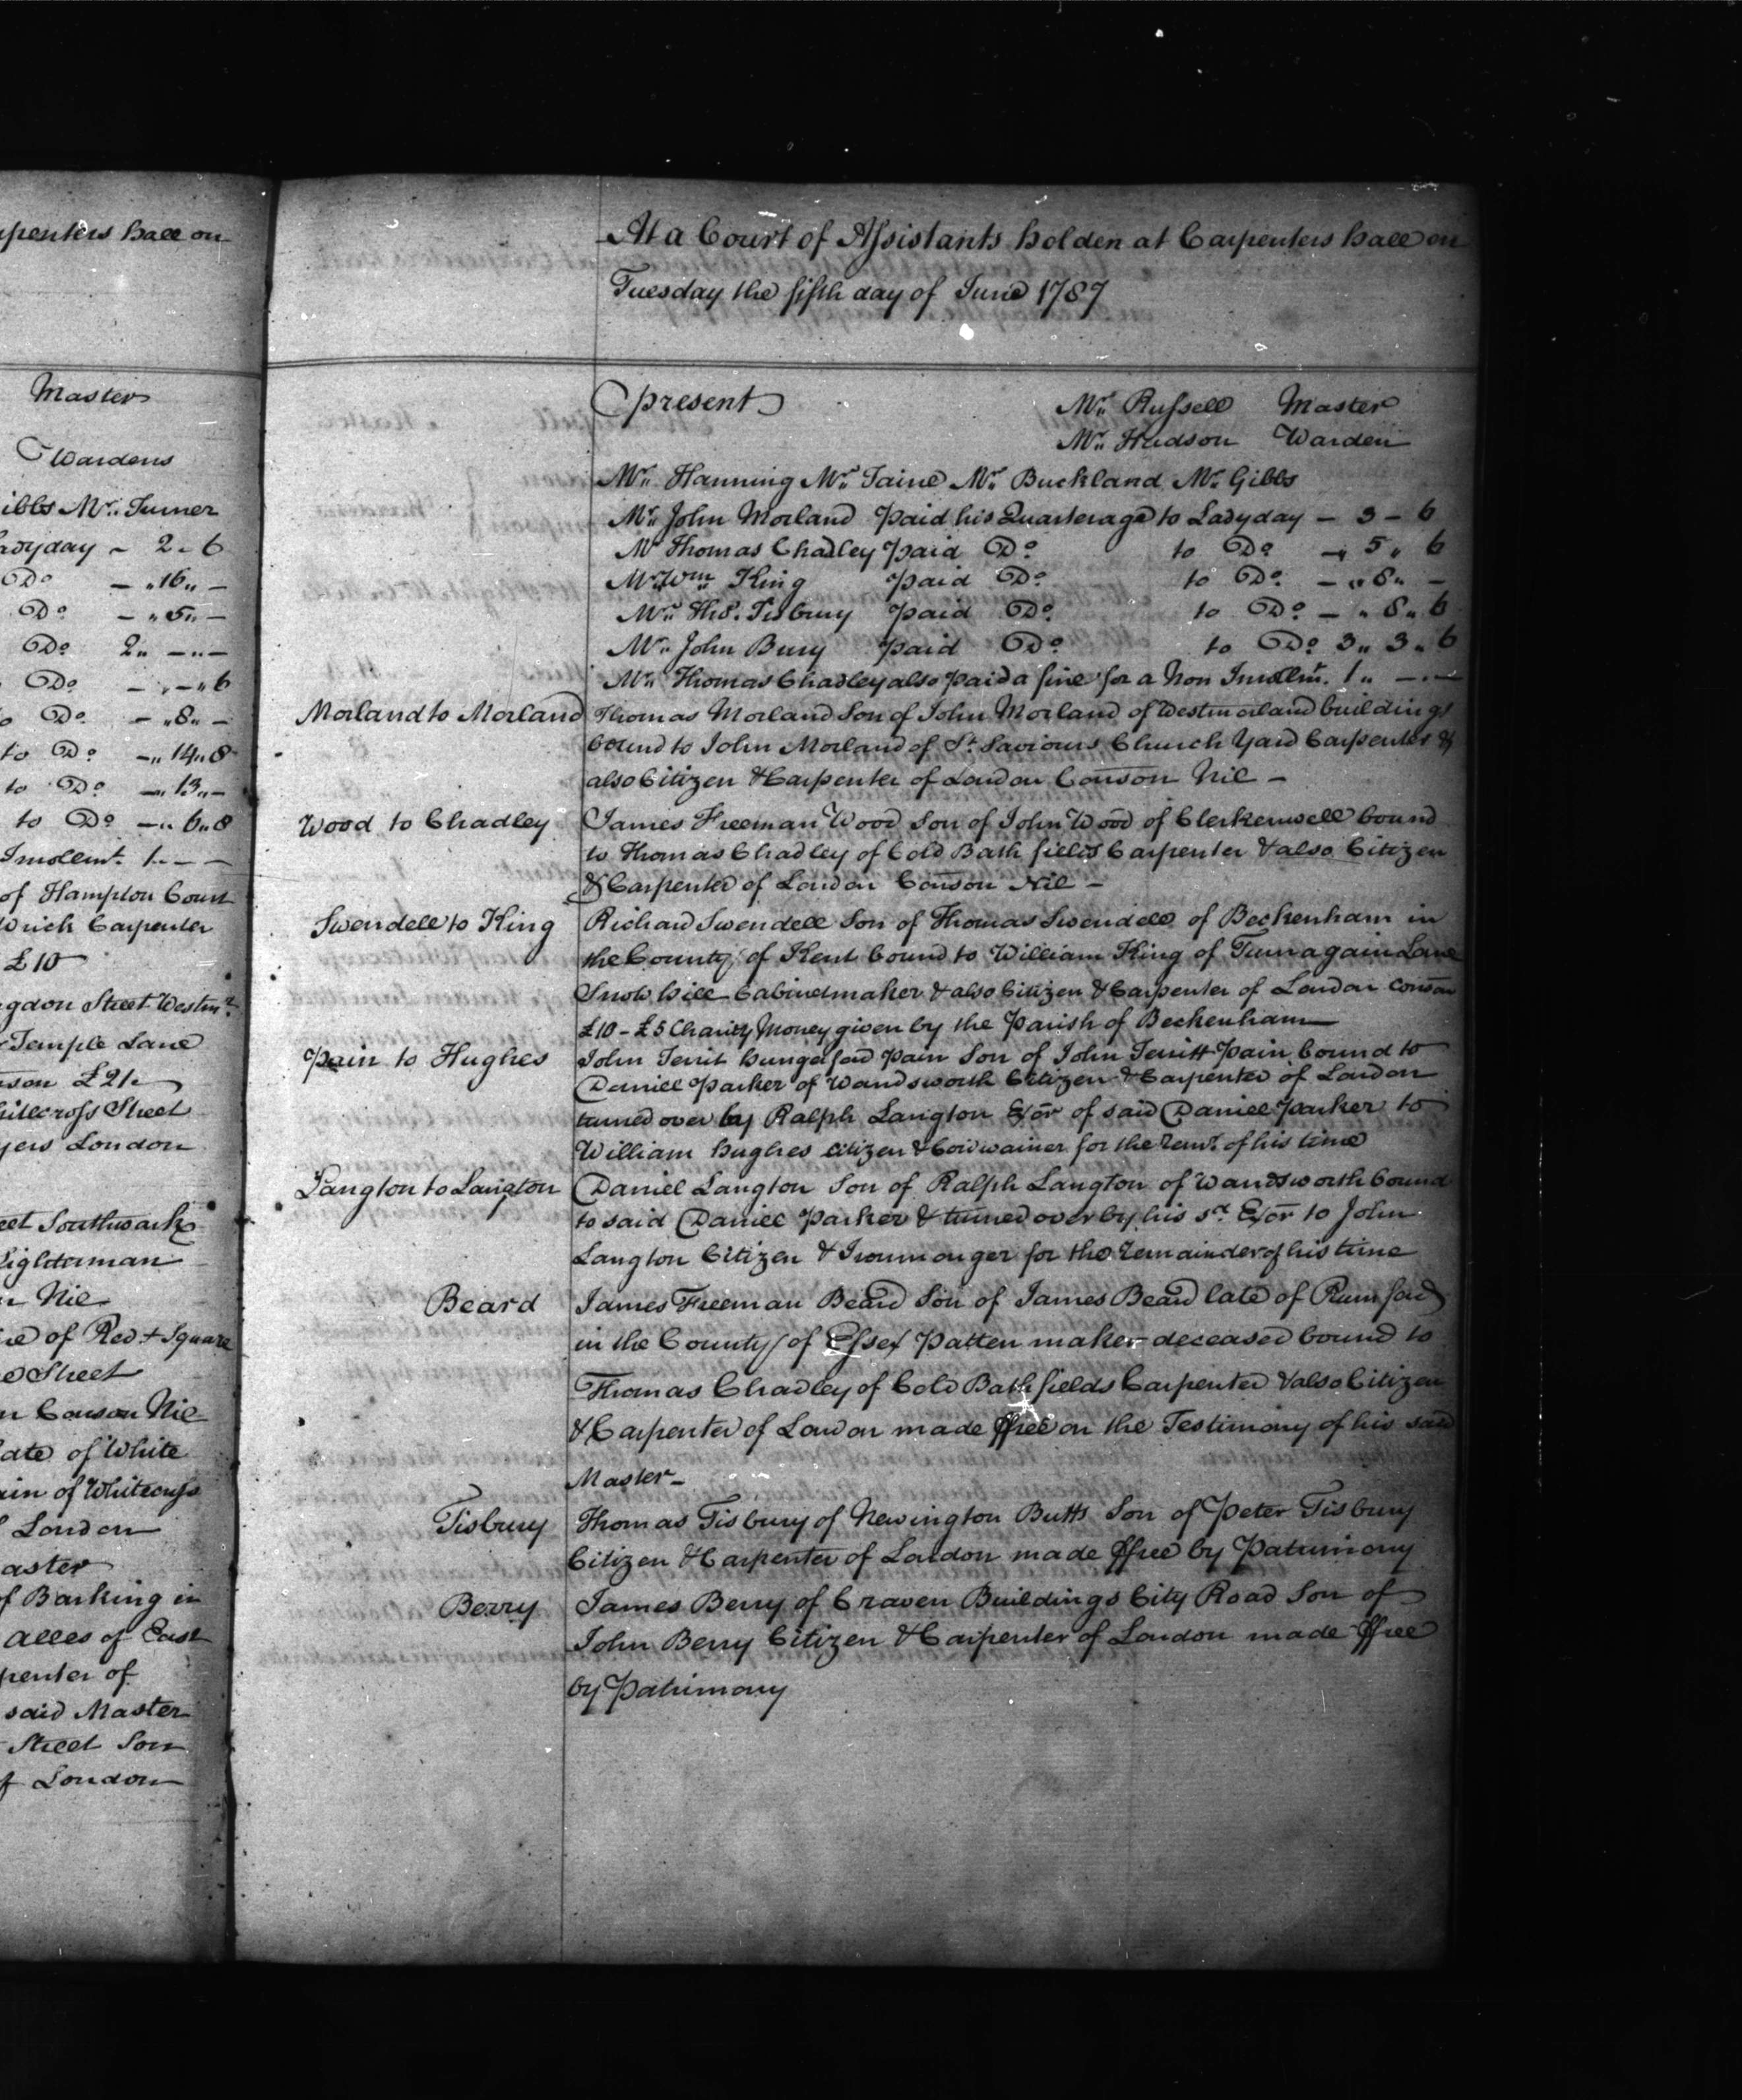 penters hall on
Master
Wardens
ibbs Mr. Turner
adyday - 2 - 6
Do - „ 16 „ -
Do - „ 5 „ -
Do 2 „ - „ -
Do - „ - „ 6
o Do - „ 8 „ -
to Do - „ 14 „ 8
to Do - „ 13 „ -
to Do - „ 6 „ 8
Inrollmt. 1 „ - -
of Hampton Court
Carpenter
£10
gdon Street Westmr.
Temple Lane
son £21
hitecross Street
yers London
eet Southwark
Lighterman
Nil
of Red + Square
Street
n Conson Nil
late of White
ain of Whitecross
London
aster
f Barking in
Alles of East
penter of
said Master
Street Son
f London
At a Court of Assistants holden at Carpenters hall on
Tuesday the fifth day of June 1787
present Mr. Russell Master
Mr. Hudson Warden
Mr. Hanning Mr. Taine Mr. Buckland Mr. Gibbs
Mr. John Morland Paid his Quarterage to Ladyday - 3 - 6
Mr Thomas Chadley Paid Do to Do - „ 5 „ 6
Mr Wm King Paid Do to Do - „ 8 „ -
Mr. Ths. Tisbury Paid Do to Do - „ 8 „ 6
Mr. John Bury Paid Do to Do 3 „ 3 „ 6
Mr. Thomas Chadley also paid a fine for a Non Inrollmt. 1 „ - „ -
Morland to Morland Thomas Morland Son of John Morland of Westmorland buildings
bound to John Morland of St. Saviours Church Yard Carpenter &
also Citizen & Carpenter of London Conson Nil -
Wood to Chadley James Freeman Wood Son of John Wood of Clerkenwell bound
to Thomas Chadley of Cold Bath fields Carpenter & also Citizen
& Carpenter of London Conson Nil -
Swendell to King Richard Swendell Son of Thomas Swendell of Beckenham in
the County of Kent bound to William King of Turnagain Lane
Snow hill Cabinetmaker & also Citizen & Carpenter of London Conson
£10 - £5 Charity Money given by the Parish of Beckenham
Pain to Hughes John Territ hungerford Pain Son of John Territt Pain bound to
Daniel Parker of Wandsworth Citizen & Carpenter of London
turned over by Ralph Langton Exor of said Daniel Parker to
William hughes citizen & Cordwainer for the remr. of his time
Langton to Langton Daniel Langton Son of Ralph Langton of Wandsworth bound
to said Daniel Parker & turned over by his sd. Exor to John
Langton Citizen & Ironmonger for the remainder of his time
Beard James Freeman Beard Son of James Beard late of Rumford
in the County of Essex Patten maker deceased bound to
Thomas Chadley of Cold Bath fields Carpenter & also Citizen
& Carpenter of London made ffree on the Testimony of his said
Master -
Tisbury Thomas Tisbury of Newington Butts Son of Peter Tisbury
Citizen & Carpenter of London made ffree by Patrimony
Berry James Berry of Craven Buildings City Road Son of
John Berry Citizen & Carpenter of London made ffree
by Patrimony